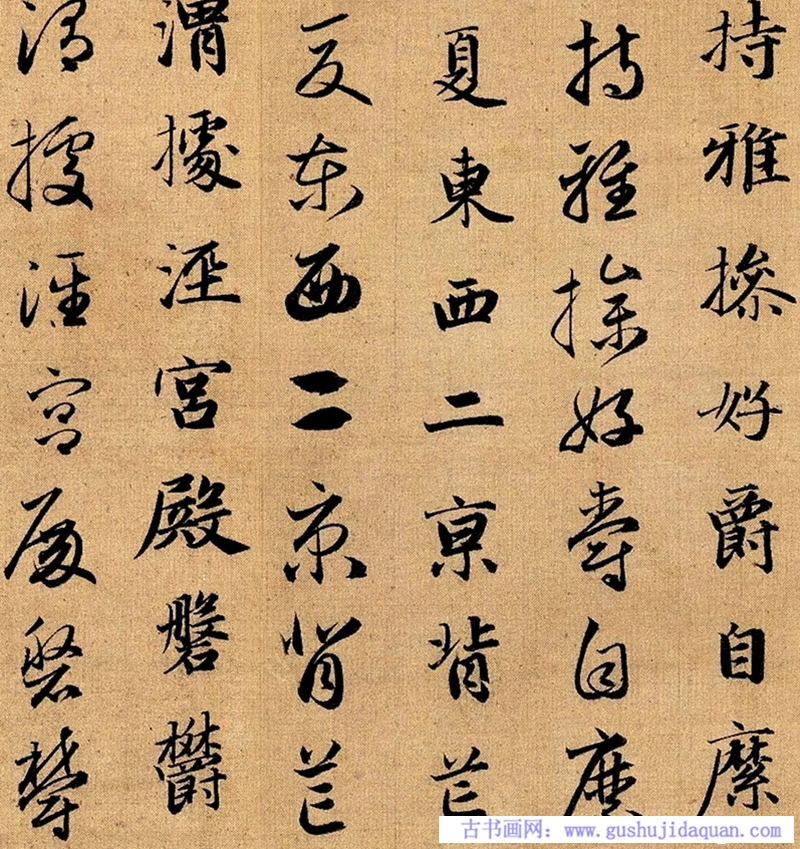 持雅操好爵自縻
持雅操好爵自縻
夏東西二京背芒
夏东西二京背芒
渭據涇宮殿磐鬱
渭據涇宮殿磐鬱
古书画网：www.gushujidaquan.com